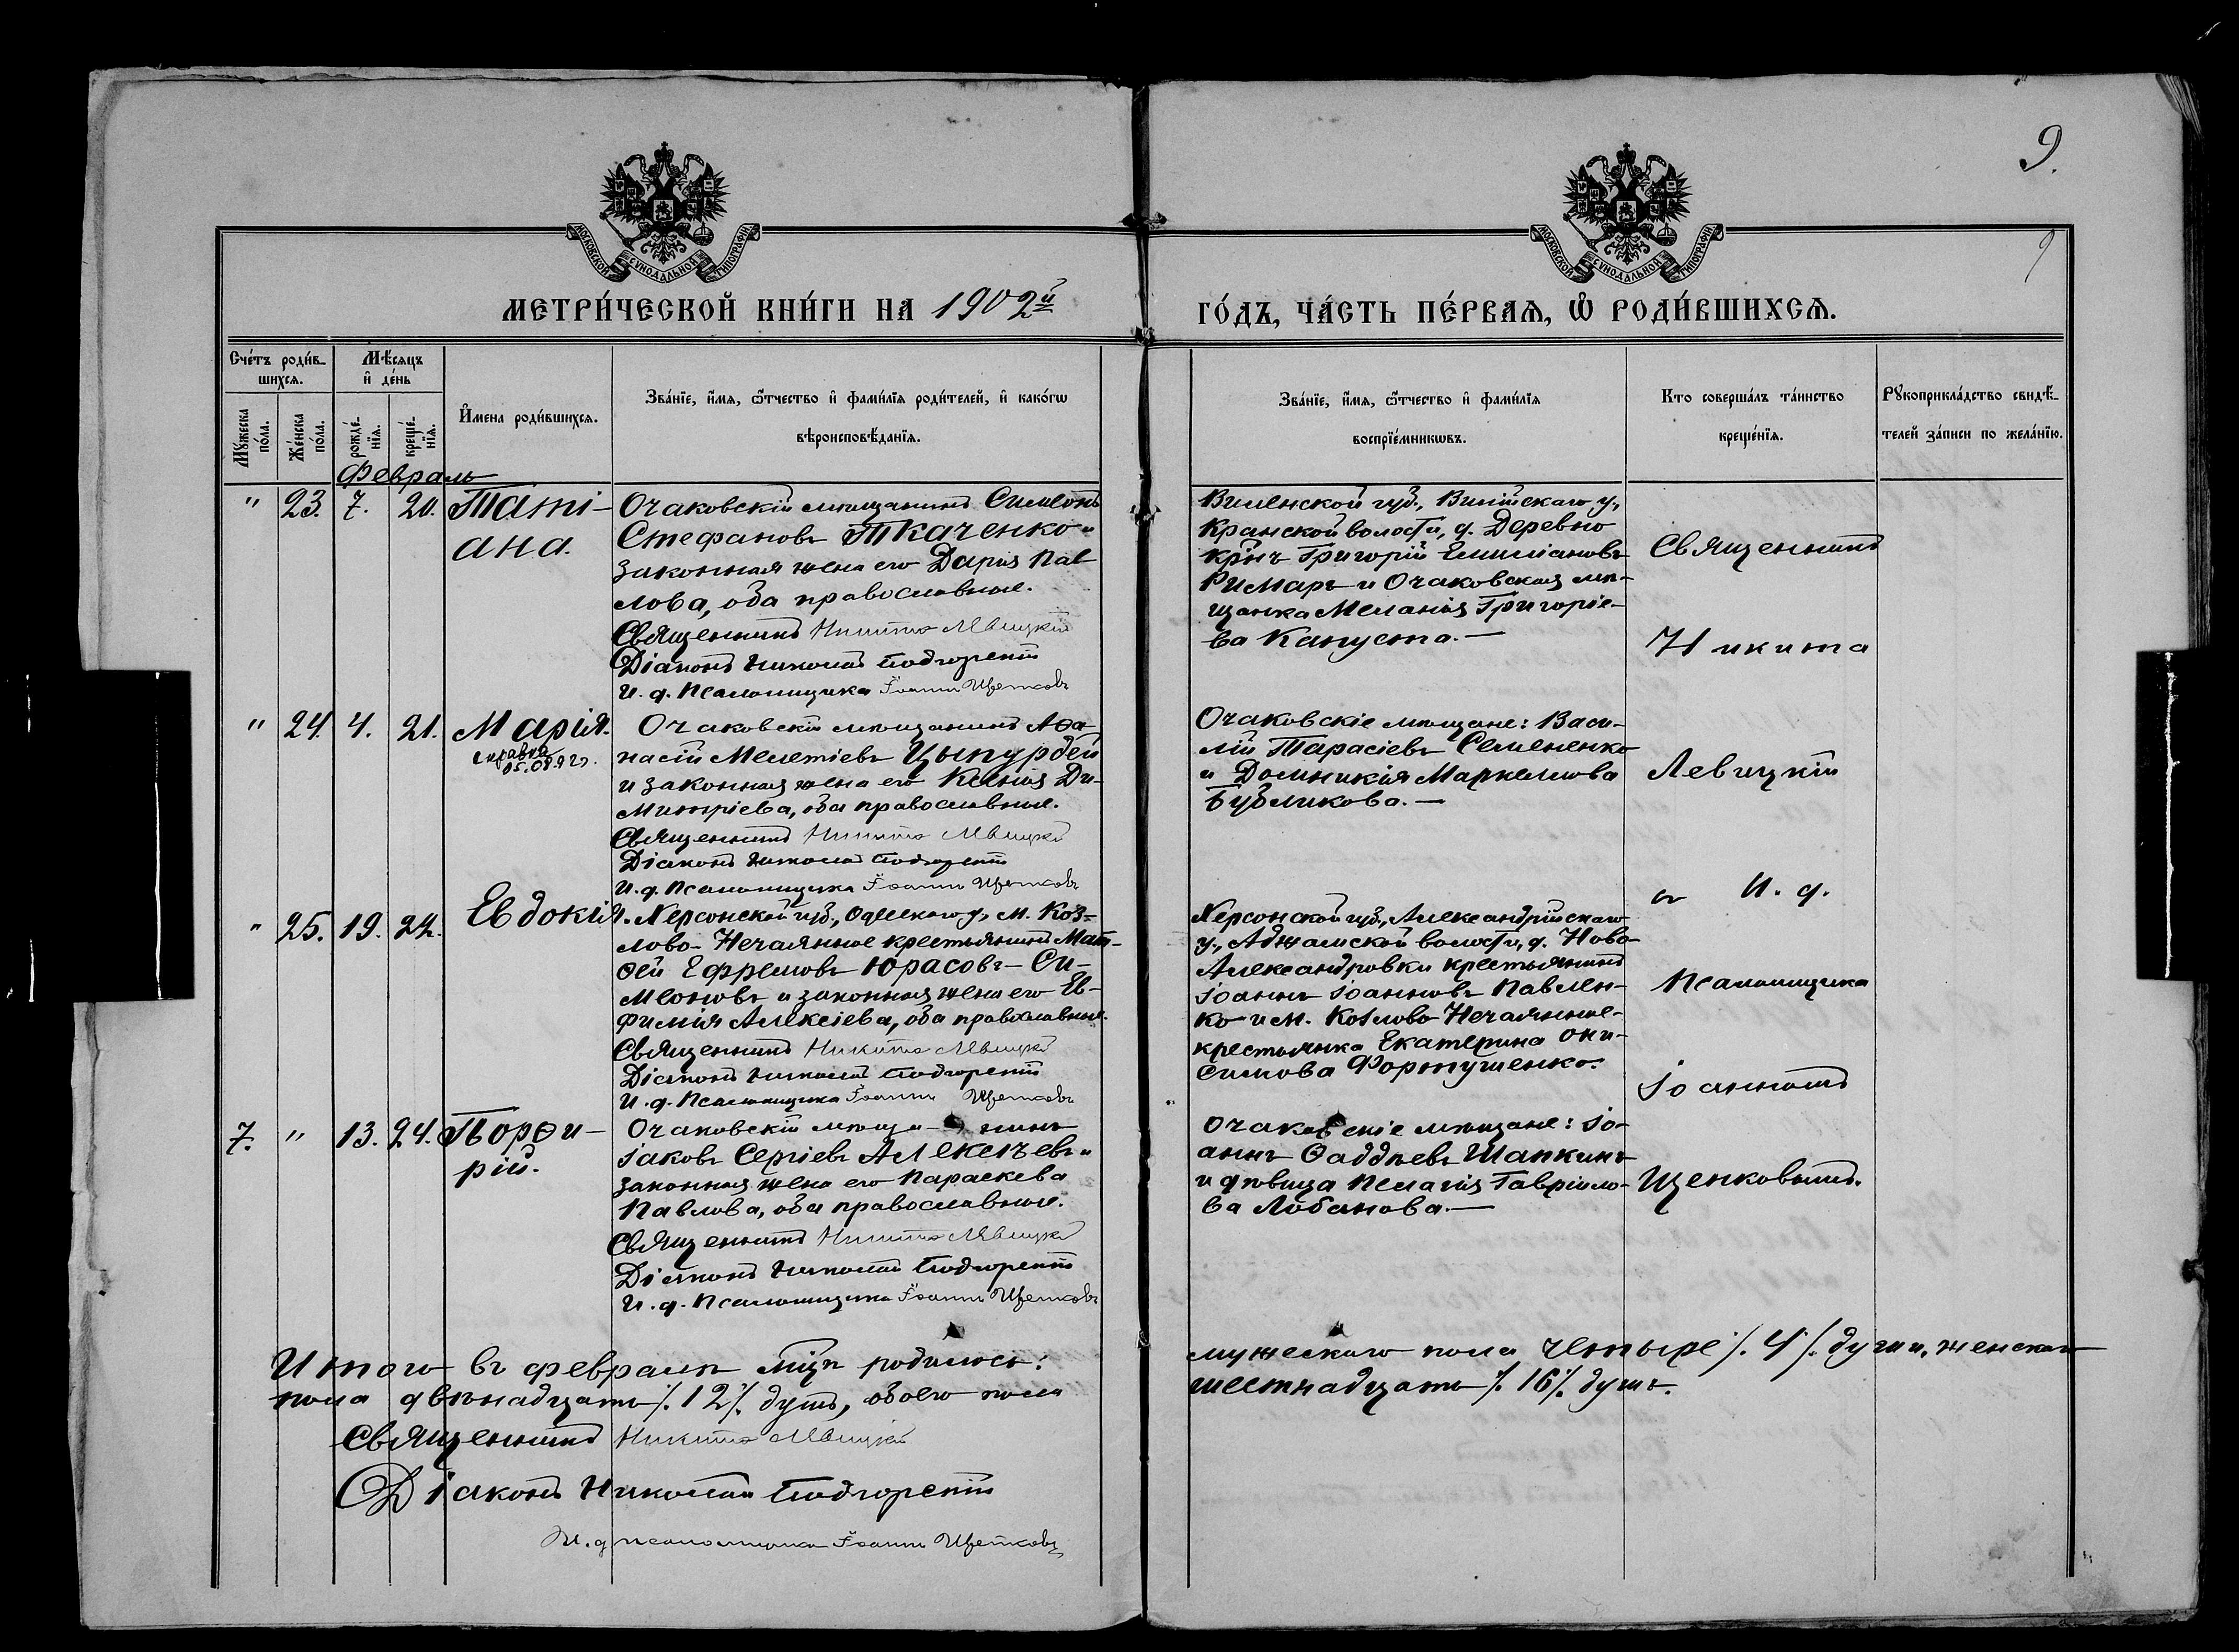 9.
9
МОСКОВСКОЙ СУНОДАЛЬНОЙ ТИПОГРАФІИ
МОСКОВСКОЙ СУНОДАЛЬНОЙ ТИПОГРАФІИ
МЕТРИ́ЧЕСКОЙ КНИ́ГИ НА 1902й
ГО́ДЪ, ЧА́СТЬ ПЕ́РВАЯ, Ѽ РОДИ́ВШИХСЯ.
Сче́тъ роди́в-
шихся.
Мѣ́сяцъ
и҆ де́нь
Мꙋ́жеска
по́ла.
Же́нска
по́ла.
рожде́-
нїя.
креще́-
нїя.
И҆мена роди́вшихся.
Зва́нїе, и҆́мя, ѻ҆́тчество и҆ фами́лїя роди́телей, и҆ како́гѡ
вѣроисповѣ́данїя.
Зва́нїе, и҆́мя, ѻ҆́тчество и҆ фами́лїя
воспрїе́мникѡвъ.
Кто соверша́лъ та́инство
креще́нїя.
Рꙋкоприкла́дство свидѣ́-
телей за́писи по жела́нїю.
Февраль
" 23. 7. 20. Татi-
ана.
Очаковскiй мѣщанинъ Симеонъ
Стефановъ Ткаченко и
законная жена его Дарiя Пав-
лова, оба православные.
Священникъ Никита Левицкiй
Дiаконъ Николай Подгорскiй
И. д. Псаломщика Iоаннъ Щенковъ
Виленской губ., Вилiйскаго у.,
Кранской волости, д. Деревно
кр-нъ Григорiй Емилiановъ
Римаръ и Очаковская мѣ-
щанка Меланiя Григорiе-
ва Капуста.—
Священникъ
Никита
" 24. 4. 21. Марiя.
справка
05.08.92 г.
Очаковскiй мѣщанинъ Аѳа-
насiй Мелетiевъ Цыпурдей
и законная жена его Ксенiя Ди-
митрiева, оба православные.
Священникъ Никита Левицкiй
Дiаконъ Николай Подгорскiй
И. д. Псаломщика Iоаннъ Щенковъ
Очаковскiе мѣщане: Васи-
лiй Тарасiевъ Семененко
и Домникiя Маркеллова
Бубликова.—
Левицкiй
" 25. 19. 22. Евдокiя.
Херсонской губ., Одесскаго у., м. Коз-
лово-Нечаянное крестьянинъ Мат-
ѳей Ефремовъ Юрасовъ-Си-
меоновъ и законная жена его Ев-
фимiя Алексiева, оба православные.
Священникъ Никита Левицкiй
Дiаконъ Николай Подгорскiй
И. д. Псаломщика Iоаннъ Щенковъ
Херсонской губ., Александрiйскаго
у., Аджамской волости, д. Ново-
Александровки крестьянинъ
Iоаннъ Iоанновъ Павлен-
ко и м. Козлово-Нечаянное
крестьянка Екатерина Они-
симова Фортушенко.
и. д.
Псаломщика
Iоанномъ
7. " 13. 24. Порѳи-
рiй.
Очаковскiй мѣща-нинъ
Iаковъ Сергiевъ Алексѣевъ и
законная жена его Параскева
Павлова, оба православные.
Священникъ Никита Левицкiй
Дiаконъ Николай Подгорскiй
И. д. Псаломщика Iоаннъ Щенковъ
Очаковскiе мѣщане: Iо-
аннъ Ѳаддѣевъ Шапкинъ
и дѣвица Пелагiя Гаврiило-
ва Лобанова.—
Щенковымъ.
Итого въ февралѣ мцѣ родилось: мужескаго пола четыре /. 4 /. души, женскаго
пола двѣнадцать /. 12 /. душъ, обоего пола шестнадцать /. 16 /. душъ.
Священникъ Никита Левицкiй
Дiаконъ Николай Подгорскiй
И. д. псаломщика Iоаннъ Щенковъ